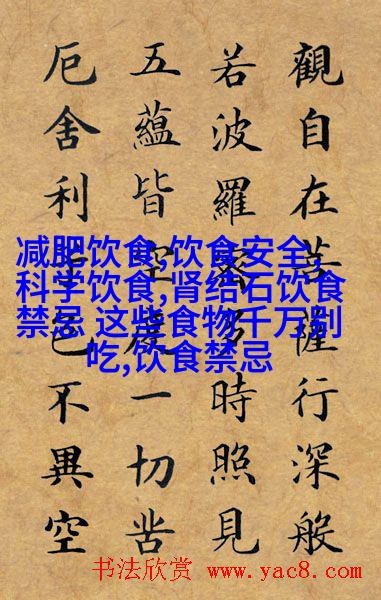 觀自在菩薩行深般
若波羅蜜多時照見
五蘊皆空度一切苦
厄舍利子色不異空
减肥饮食,饮食安全,
科学饮食,肾结石饮食
禁忌 这些食物千万别
吃,饮食禁忌
书法欣赏 www.yac8.com